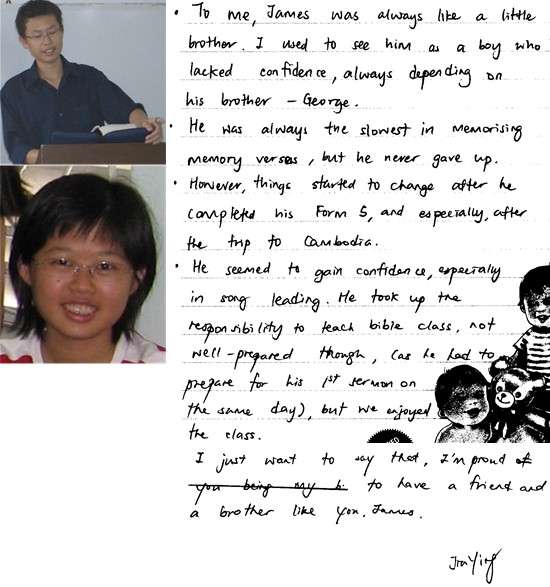 • To me, James was always like a little
brother. I used to see him as a boy who
lacked confidence, always depending on
his brother – George.
• He was always the slowest in memorising
memory verses, but he never gave up.
• However, things started to change after he
completed his Form 5, and especially, after
the trip to Cambodia.
• He seemed to gain confidence, especially
in song leading. He took up the
responsibility to teach bible class, not
well-prepared though, (as he had to
prepare for his 1st sermon on
the same day), but we enjoyed
the class.
I just want to say that, I'm proud of
you being my b. to have a friend and
a brother like you, James.
Jia Ying